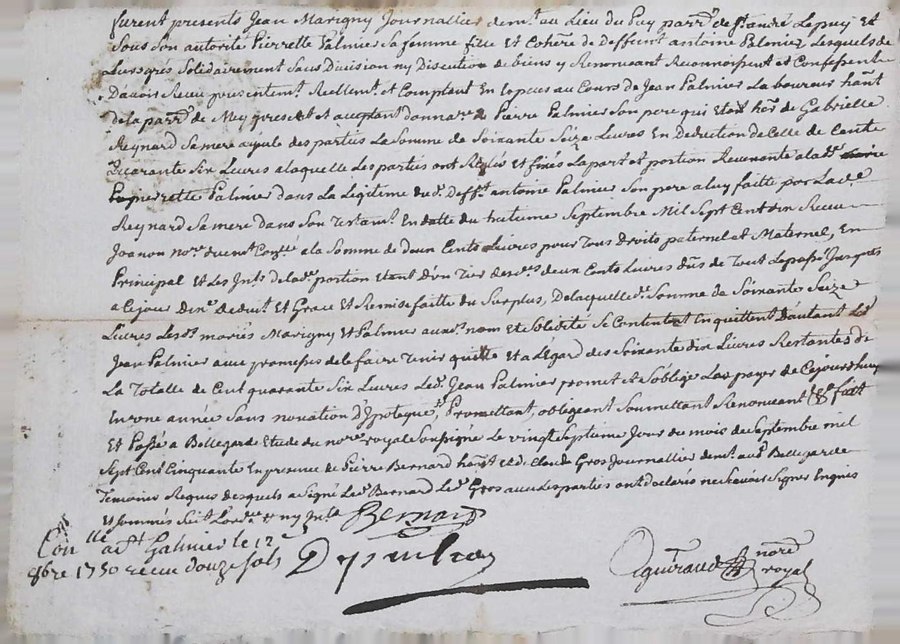 furent presents Jean Marigny Journallier demt. au Lieu du Puy parrse. de St. andré Lepuy Et
Sous Son autorité Pierrette Palmier Sa femme fille Et Cohere de Deffunt antoine Palmier Lesquels de
Leurs grés Solidairement Sans Division ny Discution de biens y Renonceant Reconnoissent et Confessent
Davoir Receu presentemt. Reellemt. et Comptant En Especes au Cours de Jean Palmier Laboureur hant.
de la parrse. de present Et acceptant donnare. de Pierre Palmier Son pere qui Etoit her. de Gabrielle
Reynard Sa mere ayeule des parties La Somme de Soixante Seize Livres En Deduction de Celle de Cente
Quarante Six Livres a laquelle Les parties ont Reglés et fixés La part et portion Revenante a lade.
Pierrette Palmier dans La Legitime dud. Defft. antoine Palmier Son pere a luy faitte par Lade.
Reynard Sa mere dans Son Testamt. En datte du treizieme Septembre Mil Sept Cent dix Receu
Joanon nore. Duement Conllé a la Somme de deux Cents Livres pour Tous Droits paternel et Maternel, En
Principal et Les Ints. de lade. portion Etant d'un Tier desdes. deux Cents Livres dûs de Tout Le passé Jusques
a Cejour Et Grace Et Remise faitte du Surplus, De laquelle de. Somme de Soixante Seize
Livres Lesds. mariés Marigny et Palmier auxds. nom et Solidité Se Contentent En quittent D'autant Led.
Jean Palmier avec promesse de le faire Tenir quitte Et a l'Egard des Soixante dix Livres Restantes de
La Totalle de Cent quarante Six Livres Led. Jean Palmier promet et S'oblige Les payer de Cejourdhuy
En une année Sans novation D'Ypoteque, Promettant, obligeant Soumettant Renonceant &a. fait
Et Passé a Bellegarde Etude du nore. royal Soussigné Le vingt Septieme Jour du mois de Septembre mil
Sept Cent Cinquante En presence de Pierre Bernard hant. et de Claude Gros Journallier demt. aud. Bellegarde
Temoins Requis desquels a Signé Led. Bernard Led. Gros avec Les parties ont declarés ne Scavoir Signer Enquis
Et Sommés
Bernard
Conllé a St. Galmier le 12e
8bre 1750 receu douze sols
Aguiraud nore.
royal